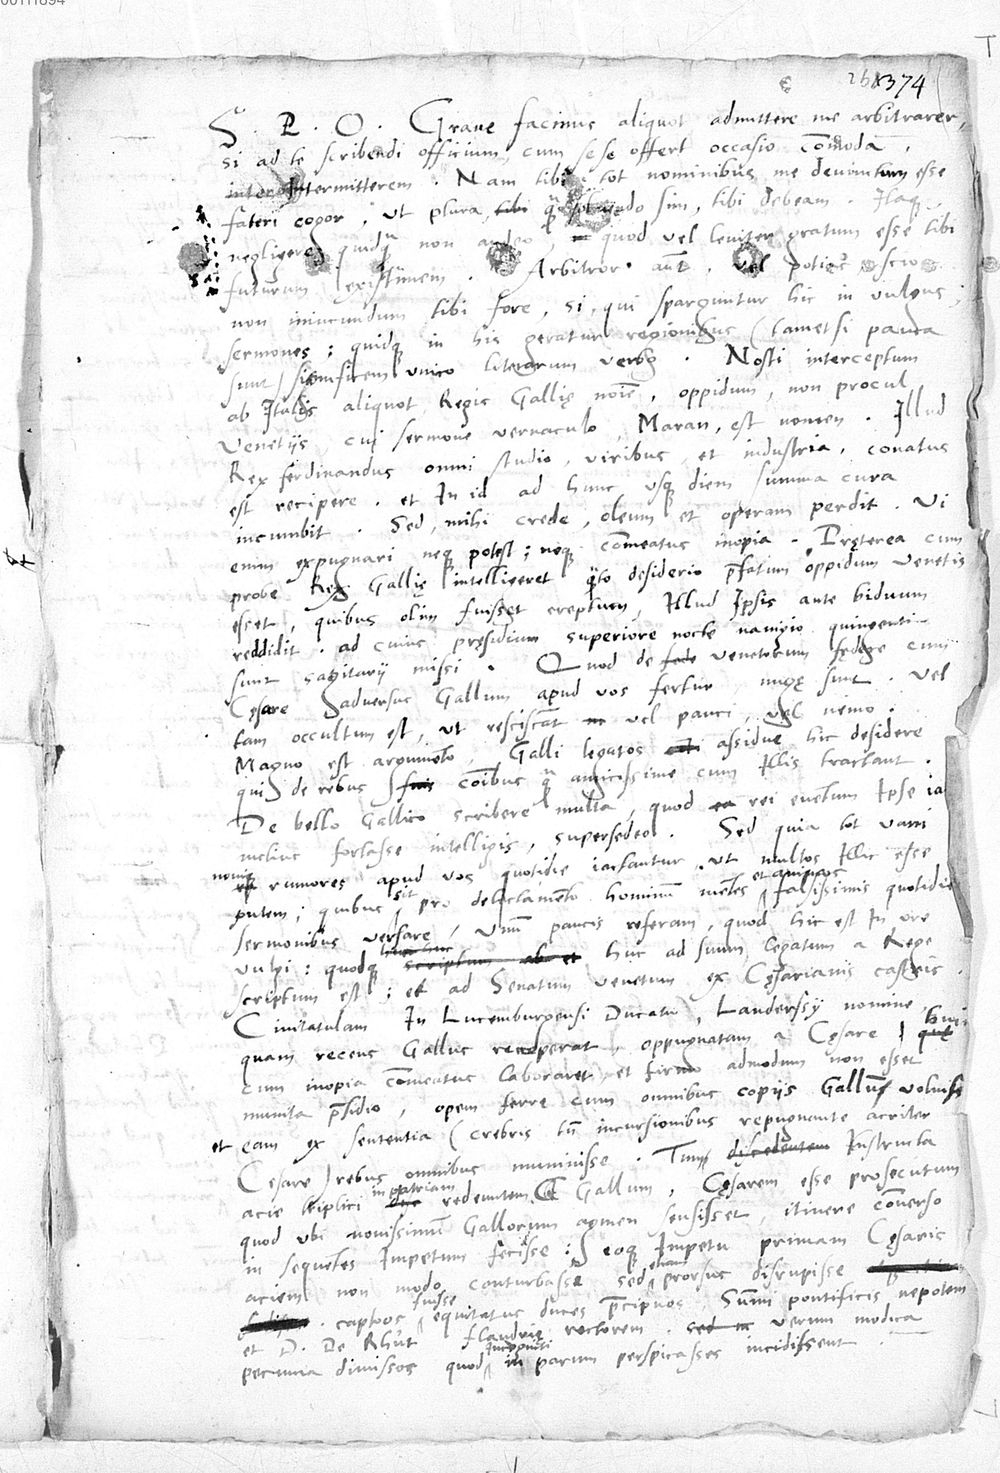 00111894
374
S. P. O. Graue facinus aliquot admittere me arbitrarer,
si ad te scribendi officium, cum sese offert occasio cōmoda,
intermitterem. Nam tibi tot nominibus me deuinctum esse
fateri cogor. Ut plura, tibi sim, tibi debeam. Itaq
negligere quidq non audeo, quod vel leuiter gratum esse tibi
futurum existimem. Arbitror aūt, vel potius scio
non iniucundum tibi fore, si, qui sparguntur hic in vulgus,
sermones; quidq in his geratur regionibus (tametsi pauca
sunt) significem unico literarum verbo. Nosti interceptum
ab Italis aliquot Regis Gallię noīe, oppidum, non procul
Venetijs, cui sermone vernaculo, Maran, est nomen. Illud
Rex ferdinandus omni studio, viribus, et industria, conatus
est recipere. et In id ad hunc usq diem summa cura
incumbit. Sed, mihi crede, oleum et operam perdit. Vi
enim expugnari neq potest; neq comeatus inopia. Pręterea cum
probe Rex Gallię intelligeret q̄to desiderio p̄fatum oppidum Venetis
esset, quibus olim fuisset ereptum, Illud Ipsis ante biduum
reddidit. ad cuius pręsidium superiore nocte nauigio quingenti
sunt sagitarij missi. Quod de Venetorum fędere cum
Cęsare aduersus Gallum apud vos fertur, nugę sunt. Vel
tam occultum est, ut resciscāt vel pauci, vel nemo.
Magno est argumēto, Galli legatos assidue hic desidere
qui de rebus cōibus q̄ amicissime cum Illis tractant.
De bello Gallico scribere multa, quod rei euentum Ipse iā
melius fortasse intelligis, supersedeo. Sed quia tot varii
nouiq rumores apud vos quotidie iactantur, ut multos Illic esse
putem; quibus sit pro delectamēto hominum mētes et animos falsissimis quotidie
sermonibus versare, Unū paucis referam, quod hic est In ore
vulgi: quodq huc ad suum legatum a Rege
scriptum est; et ad Senatum Venetum ex Cęsarianis castris.
Ciuitatulam In Lucemburgensi Ducatu, Landersij nomine,
quam recens Gallus receperat, oppugnatam a Cęsare
cum inopia cōmeatus laboraret, et firmo admodum non esset
munita p̄sidio, opem ferre cum omnibus copijs Gallus voluisse
et eam ex sententia (crebris tn̄ incursionibus repugnante acriter
Cęsare) rebus omnibus muniuisse. Tum discedentem Instructa
acie triplici in patriam redeuntem Gallum, Cęsarem esse prosecutum
quod ubi nouissimū Gallorum agmen sensisset, itinere cōuerso
in sequētes Impetum fecisse: eoq Impetu primam Cęsaris
aciem non modo conturbasse sed etiam prorsus disrupisse
captos fuisse equitatus duces p̄cipuos, Sūmi pontificis nepotem
et D. De Rhūt Flandrię rectorem. verum modica
pecunia dimissos quod parum perspicasses incidissent.